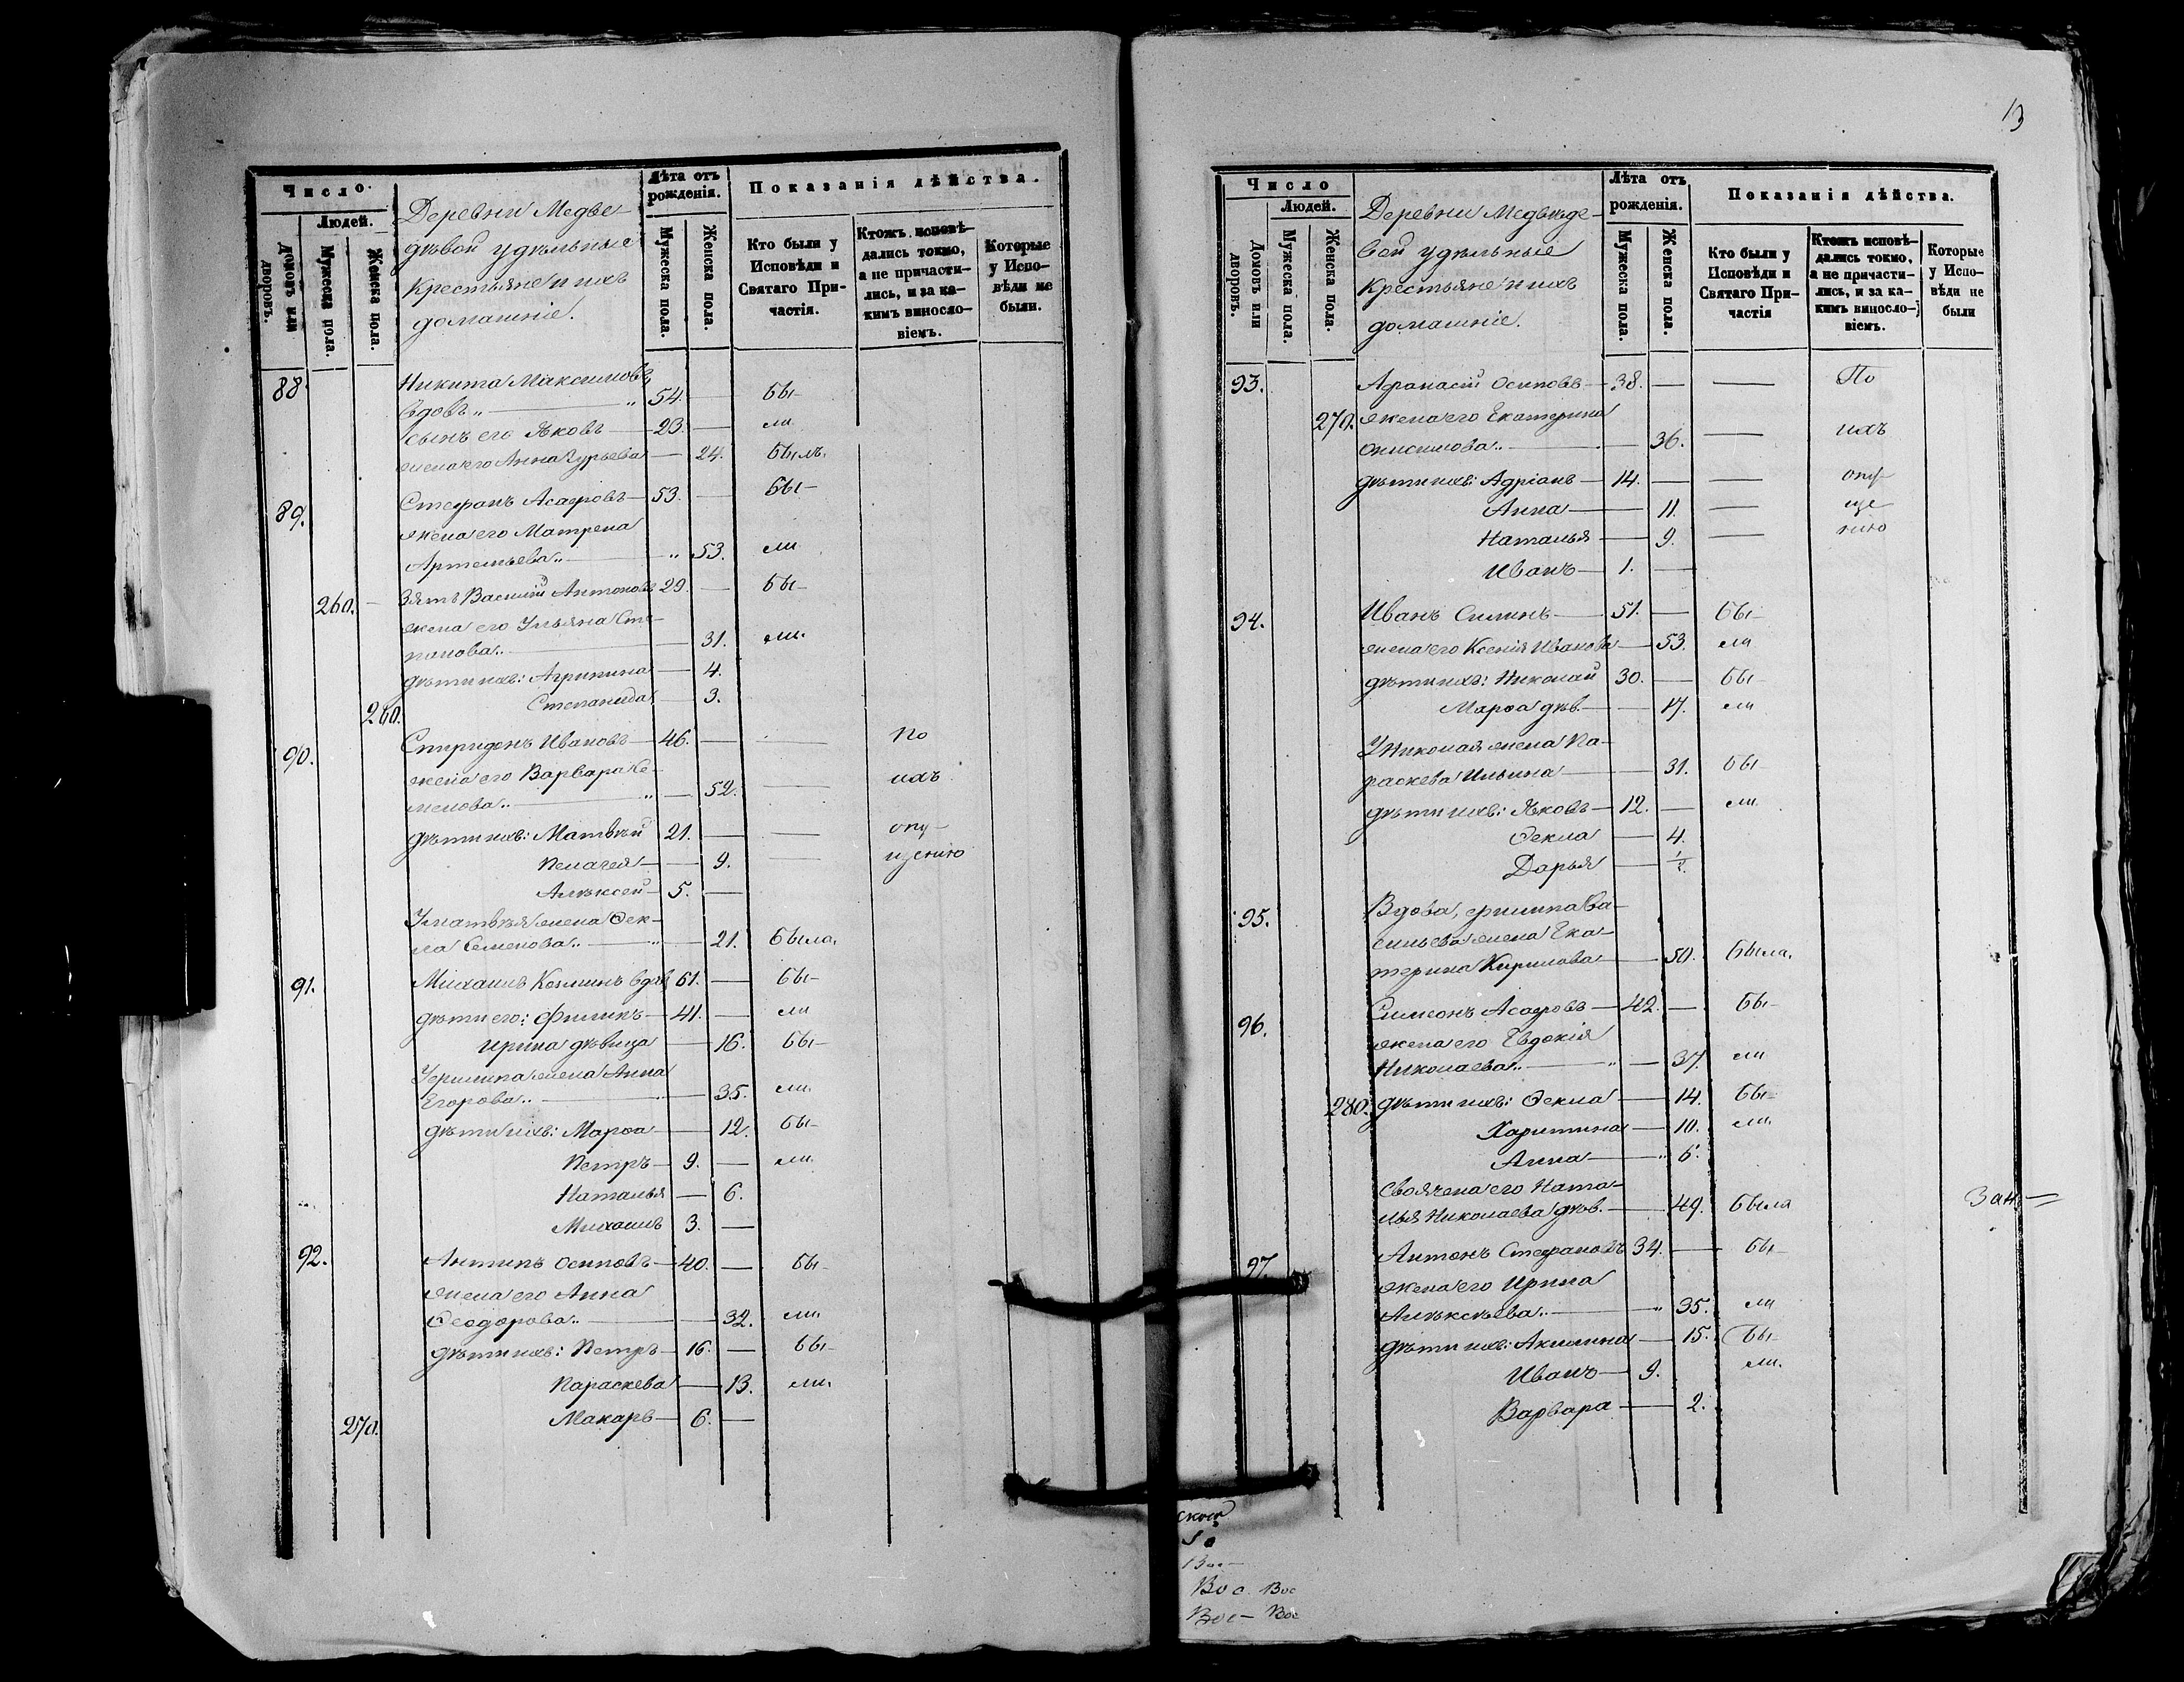 Число.
Людей.
Домовъ или дворовъ.
Мужеска пола.
Женска пола.
Деревни Медве-
дѣвой удѣльные
крестьяне и ихъ
домашніе.
Лѣта отъ рожденія.
Мужеска пола.
Женска пола.
Показанія дѣйства.
Кто были у Исповѣди и Святаго При-частія.
Ктожъ исповѣ-дались токмо, а не причасти-лись, и за ка-кимъ винос­ло-віемъ.
Которые у Испо-вѣди не были.
88. Никита Максимовъ
вдовъ „ — „ 54. — бы-
сынъ его Яковъ — 23. — ли
жена его Анна Гурьева — 24. былъ.
89. Стефанъ Асафовъ — 53. — бы-
жена его Матрена
Артемьева.. — „ 53. ли
260. — Зять Василій Антоновъ 29. — бы-
жена его Ульяна Сте-
панова.. — 31. ли.
дѣти ихъ: Агрипина — 4.
260. Степанида — 3.
90. Спиридонъ Ивановъ — 46. — — По
жена его Варвара Се-
менова.. — „ — 52. — ихъ
дѣти ихъ: Матвѣй 21. — — опу-
Пелагея — 9. — щенію
Алѣксей — 5. —
У Матвѣя жена Ѳек-
ла Семенова.. — „ — 21. была.
91. Михаилъ Козминъ вдов. 61. — бы-
дѣти его: Филипъ — 41. — ли
Ирина дѣвица — 16. бы-
У Филипа жена Анна
Егорова.. — 35. ли.
дѣти ихъ: Марѳа — 12. бы-
Петръ — 9. — ли.
Наталья — 6.
Михаилъ 3. —
92. Антипъ Осиповъ — 40. — бы-
жена его Анна
Ѳеодорова.. — 32. ли.
дѣти ихъ: Петръ — 16. — бы-
Параскева — 13. ли.
270. Макаръ — 6. —
13
Число
Людей.
Домовъ или дворовъ.
Мужеска пола.
Женска пола.
Деревни Медвѣде-
вой удѣльные
крестьяне и ихъ
домашніе.
Лѣта отъ рожденія.
Мужеска пола.
Женска пола.
Показанія дѣйства.
Кто были у Исповѣди и Святаго При-частія
Ктожъ исповѣ-дались токмо, а не причасти-лись, и за ка-кимъ винос­ло-віемъ.
Которые у Испо-вѣди не были
93. Афанасій Осиповъ — 38. — — По
270. жена его Екатерина
Онисимова.. — 36. — ихъ
дѣти ихъ: Адріанъ — 14. — — опу-
Анна — 11. — ще
Наталья — 9. — нію
Иванъ — 1. —
94. Иванъ Силинъ — 51. — бы-
жена его Ксенія Иванова — 53. ли
дѣти ихъ: Николай 30. — бы-
Марѳа дѣв. — 17. ли
У Николая жена Па-
раскева Ильина — 31. бы-
дѣти ихъ: Яковъ — 12. — ли.
Ѳекла — 4.
Дарья —
95. Вдова, филипа Ва-
сильева жена Ека-
терина Кирилова — 50. была.
96. Симеонъ Асафовъ — 42. — бы-
жена его Евдокія
Николаева.. — „ — 37. ли
280. дѣти ихъ: Ѳекла — 14. бы-
Харитина — 10. ли.
Анна — „ 6.
Своячена его Ната-
лья Николаева дѣв. — 49. была
97. Антонъ Стефановъ 34. — бы-
жена его Ирина
Алѣксѣева.. — „ 35. ли
дѣти ихъ: Акилина — 15. бы-
Иванъ — 9. ли.
Варвара — 2.
Вос Вос
Вос- Вос